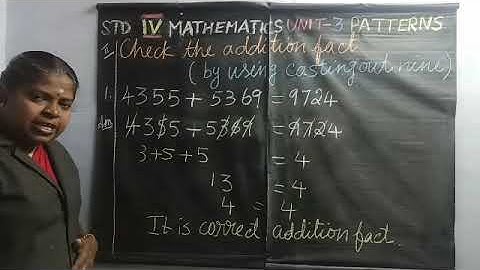 STD IV MATHEMATICS UNIT-3 PATTERNS
I, Check the addition fact.
(by using casting out nine)
1. 4355 + 5369 = 9724
4355 + 5369 = 9724
3+5+5 = 4
13 = 4
4 = 4
It is correct addition fact.